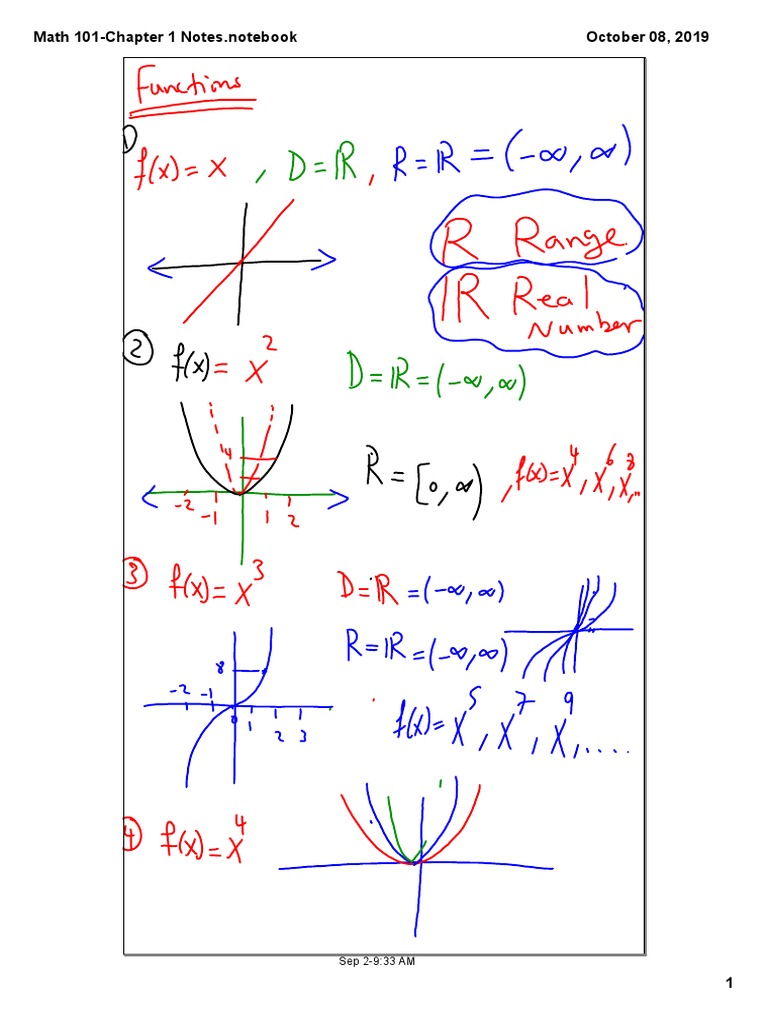 Math 101-Chapter 1 Notes.notebook
October 08, 2019
Functions
1) f(x) = x , D = ℝ, R = ℝ = (-∞, ∞)
R Range
ℝ Real
Number
2 f(x) = x² D = ℝ = (-∞, ∞)
4
-2 -1 1 2
R = [0, ∞) , f(x) = x⁴, x⁶, x⁸, ..
3 f(x) = x³ D = ℝ = (-∞, ∞)
R = ℝ = (-∞, ∞)
8
-2 -1 0 1 2 3
f(x) = x⁵, x⁷, x⁹, ....
4 f(x) = x⁴
Sep 2-9:33 AM
1